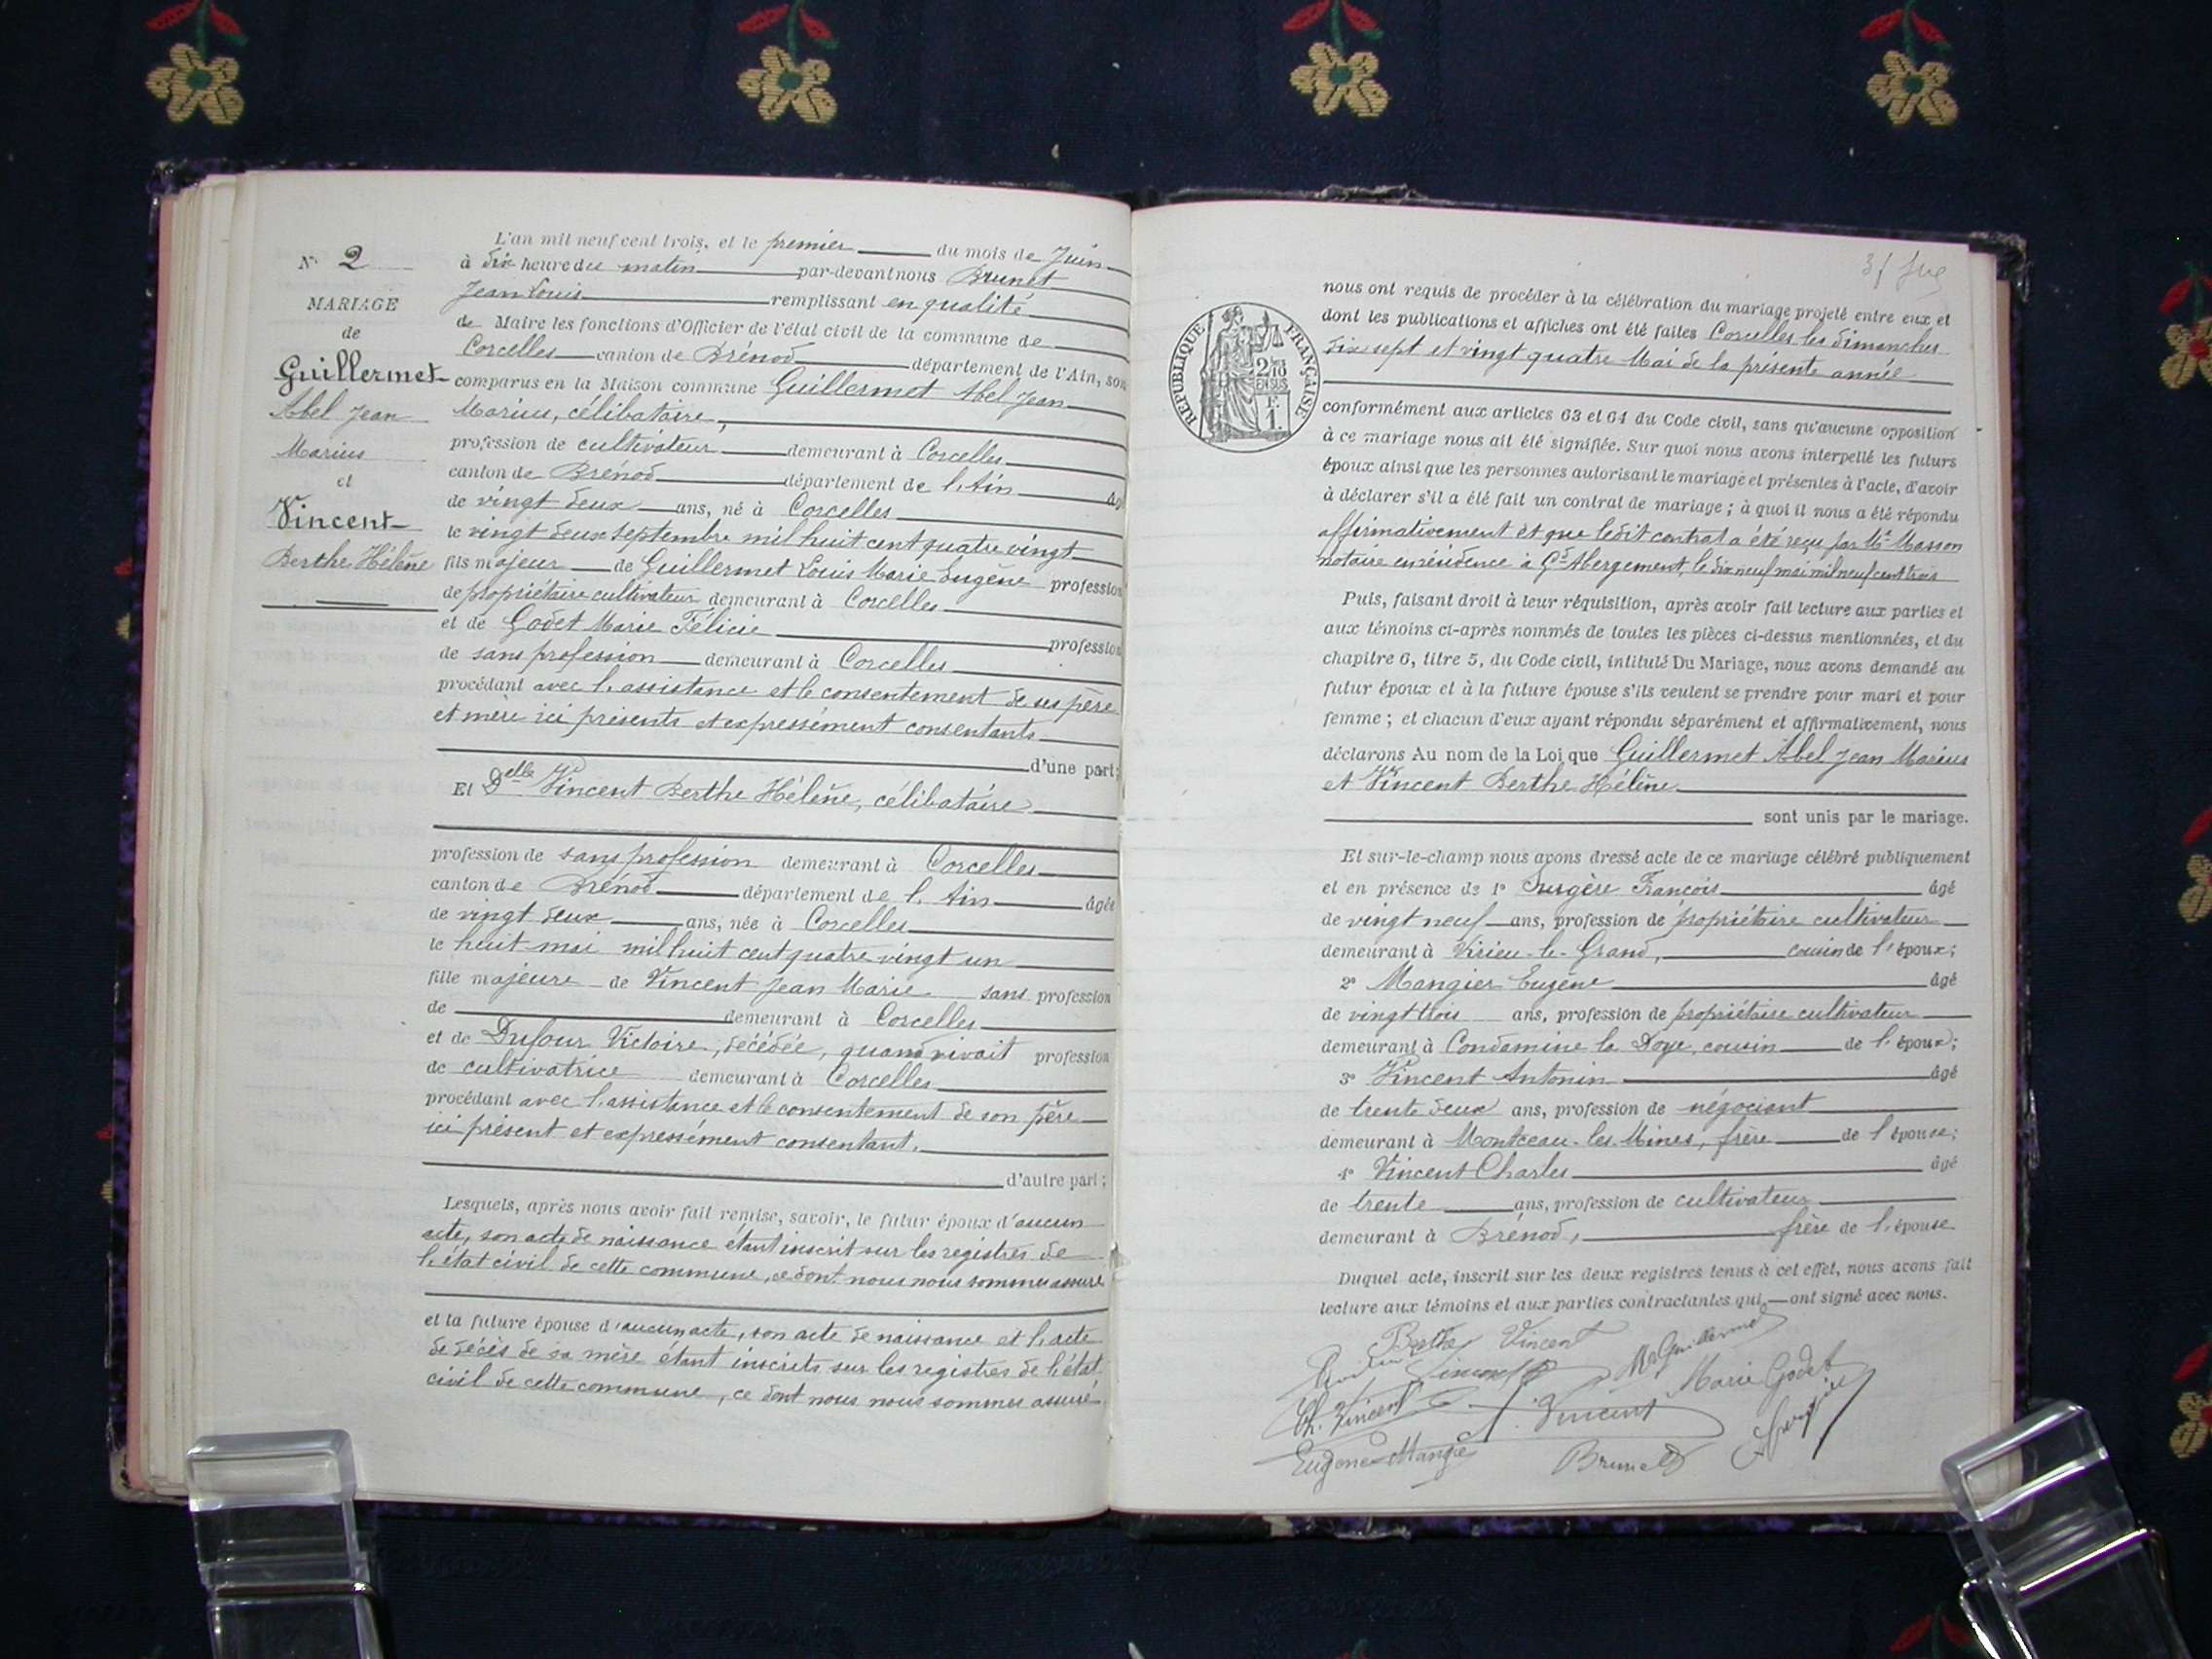 N° 2
MARIAGE
de
Guillermet
Abel Jean
Marius
et
Vincent
Berthe Hélène
L'an mil neuf cent trois, et le premier du mois de Juin
à dix heure du matin par-devant nous Brunet
Jean Louis remplissant en qualité
de Maire les fonctions d'Officier de l'état civil de la commune de
Corcelles canton de Brénod département de l'Ain, son
comparus en la Maison commune Guillermet Abel Jean
Marius, célibataire,
profession de cultivateur demeurant à Corcelles
canton de Brénod département de l'Ain âgé
de vingt deux ans, né à Corcelles
le vingt deux septembre mil huit cent quatre vingt
fils majeur de Guillermet Louis Marie Eugène profession
de propriétaire cultivateur demeurant à Corcelles
et de Godet Marie Félicie profession
de sans profession demeurant à Corcelles
procédant avec l'assistance et le consentement de ses père
et mère ici présents et expressément consentants
d'une part;
Et Delle Vincent Berthe Hélène, célibataire
profession de sans profession demeurant à Corcelles
canton de Brénod département de l'Ain âgée
de vingt deux ans, née à Corcelles
le huit mai mil huit cent quatre vingt un
fille majeure de Vincent Jean Marie sans profession
de demeurant à Corcelles
et de Dufour Victoire, décédée, quand vivait profession
de cultivatrice demeurant à Corcelles
procédant avec l'assistance et le consentement de son père
ici présent et expressément consentant.
d'autre part;
Lesquels, après nous avoir fait remise, savoir, le futur époux d'aucun
acte, son acte de naissance étant inscrit sur les registres de
l'état civil de cette commune, ce dont nous nous sommes assuré
et la future épouse d'aucun acte, son acte de naissance et l'acte
de décès de sa mère étant inscrits sur les registres de l'état
civil de cette commune, ce dont nous nous sommes assuré
RÉPUBLIQUE FRANÇAISE
2/10
EN SUS
F.
1.
nous ont requis de procéder à la célébration du mariage projeté entre eux et
dont les publications et affiches ont été faites Corcelles les dimanches
dix sept et vingt quatre Mai de la présente année
conformément aux articles 63 et 64 du Code civil, sans qu'aucune opposition
à ce mariage nous ait été signifiée. Sur quoi nous avons interpellé les futurs
époux ainsi que les personnes autorisant le mariage et présentes à l'acte, d'avoir
à déclarer s'il a été fait un contrat de mariage; à quoi il nous a été répondu
affirmativement et que ledit contrat a été reçu par Me Masson
notaire en résidence à Gd Abergement, le dix neuf mai mil neuf cent trois
Puis, faisant droit à leur réquisition, après avoir fait lecture aux parties et
aux témoins ci-après nommés de toutes les pièces ci-dessus mentionnées, et du
chapitre 6, titre 5, du Code civil, intitulé Du Mariage, nous avons demandé au
futur époux et à la future épouse s'ils veulent se prendre pour mari et pour
femme; et chacun d'eux ayant répondu séparément et affirmativement, nous
déclarons Au nom de la Loi que Guillermet Abel Jean Marius
et Vincent Berthe Hélène
sont unis par le mariage.
Et sur-le-champ nous avons dressé acte de ce mariage célébré publiquement
et en présence de 1° François âgé
de vingt neuf ans, profession de propriétaire cultivateur
demeurant à Virieu-le-Grand, cousin de l'époux;
2° Mangier Eugène âgé
de vingt trois ans, profession de propriétaire cultivateur
demeurant à Condamine la Doye, cousin de l'époux;
3° Vincent Antonin âgé
de trente deux ans, profession de négociant
demeurant à Montceau-les-Mines, frère de l'épouse;
4° Vincent Charles âgé
de trente ans, profession de cultivateur
demeurant à Brénod, frère de l'épouse
Duquel acte, inscrit sur les deux registres tenus à cet effet, nous avons fait
lecture aux témoins et aux parties contractantes qui ont signé avec nous.
Berthe Vincent
Vincent Guillermet
Ch. Vincent Vincent Marie Godet
Eugène Brunet